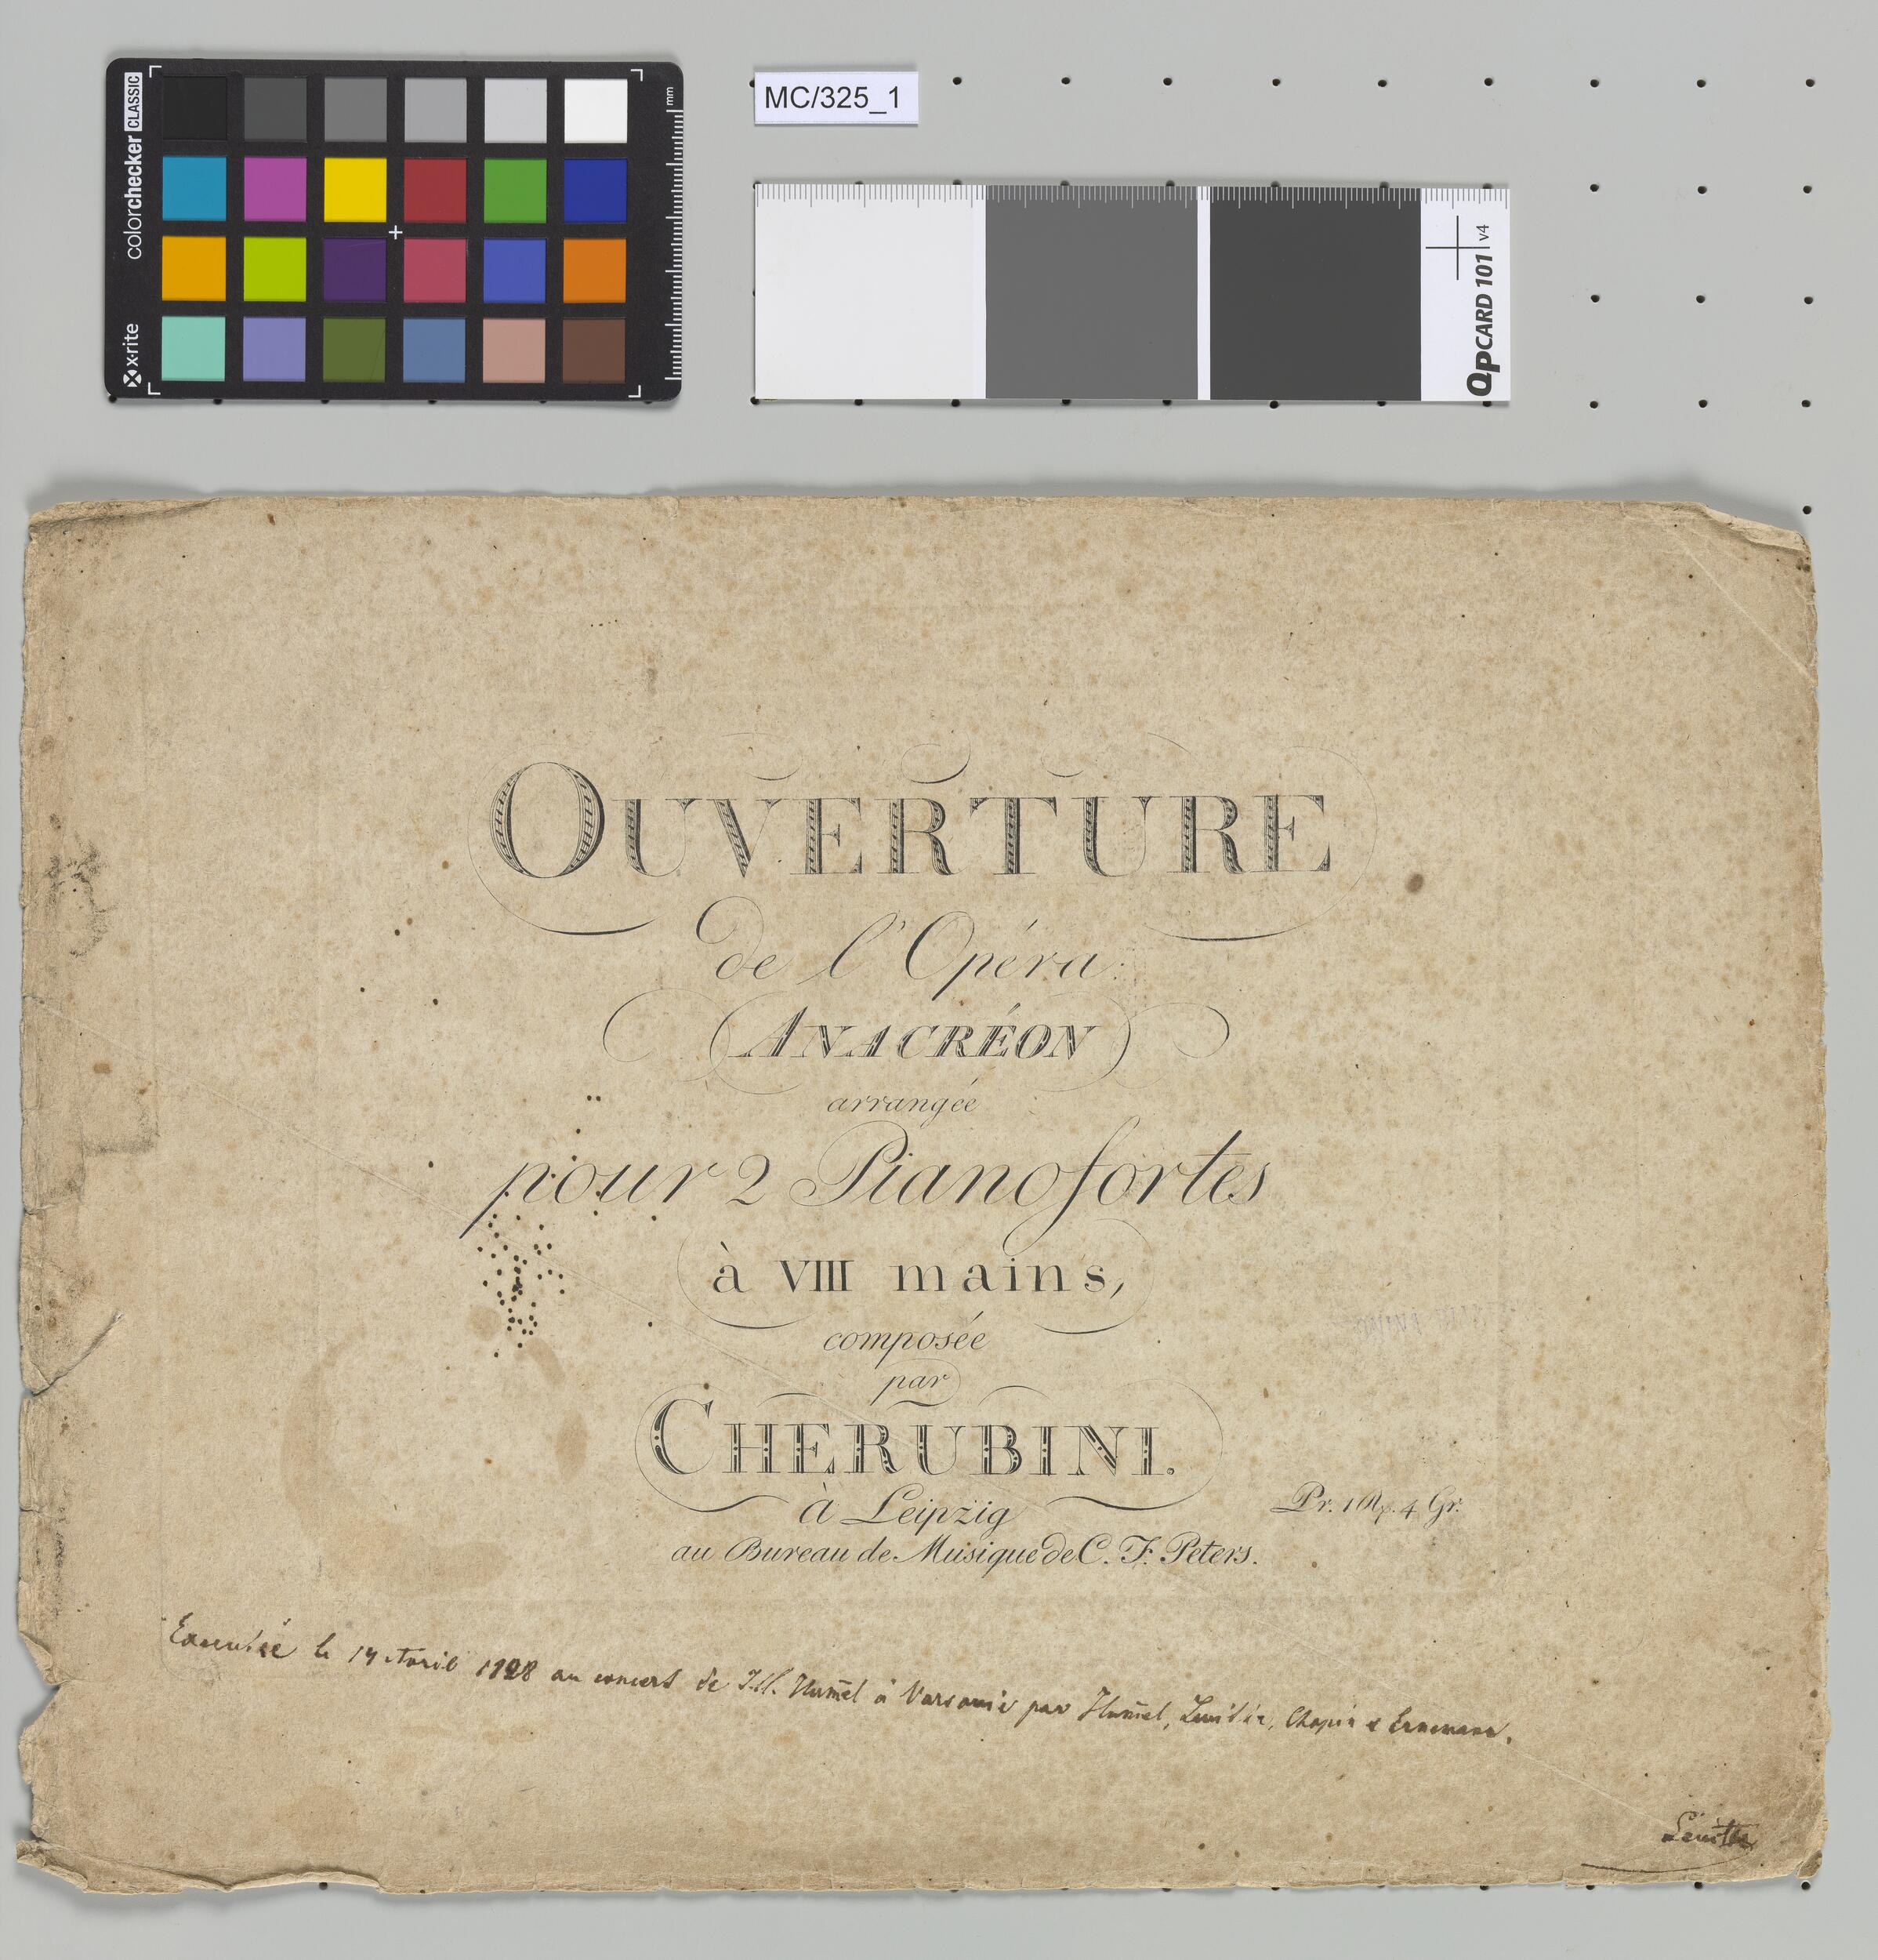 colorchecker CLASSIC
x-rite
mm
MC/325_1
QPCARD 101 v4
OUVERTURE
de l'Opéra
ANACRÉON
arrangée
pour 2 Pianofortes
à VIII mains,
composée
par
CHERUBINI.
à Leipzig
au Bureau de Musique de C. F. Peters.
Pr. 1 Rp. 4 Gr.
Executée le 14 Avril 1828 au concert de J.N. Hum̄el à Varsovie par Hum̄el, Lenitte, Chopin & Ernemann.
Lenitte